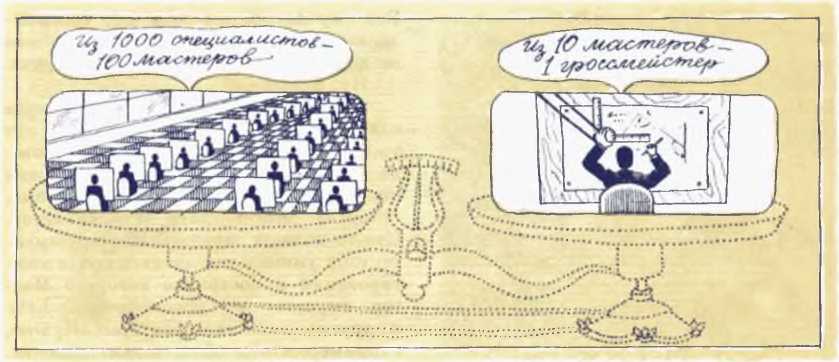 Из 1000 специалистов –
100 мастеров
Из 10 мастеров –
1 гроссмейстер